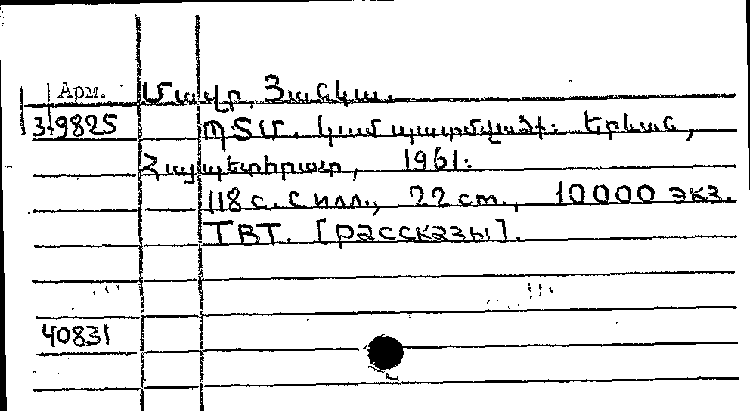 Арм. Մավր, Յանկա.
3-9825 ՊՏՄ. կամ պատմվածք: Երևան,
Հայպետհրատ, 1961:
118 с. с илл., 22 ст., 10000 экз.
ТВТ. [рассказы].
40831